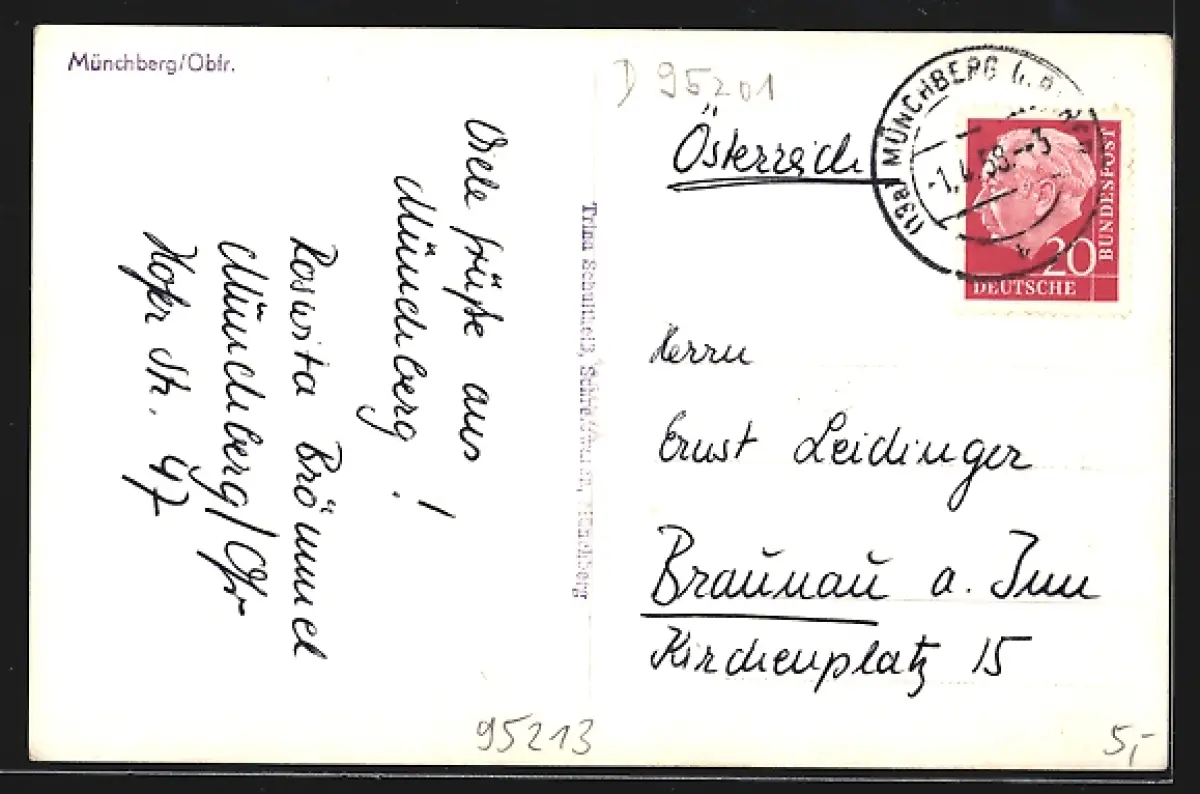 Münchberg/Obfr.
D 95201
Österreich
MÜNCHBERG
-1.4.58.--3
20
DEUTSCHE
BUNDESPOST
Viele Grüße aus
Münchberg!
Roswita Brömmel
Münchberg/Ofr
Hofer Str. 47
Schultheiß, Schreibwaren, Münchberg
Herrn
Ernst Leidinger
Braunau a. Inn
Kirchenplatz 15
95213
5,-